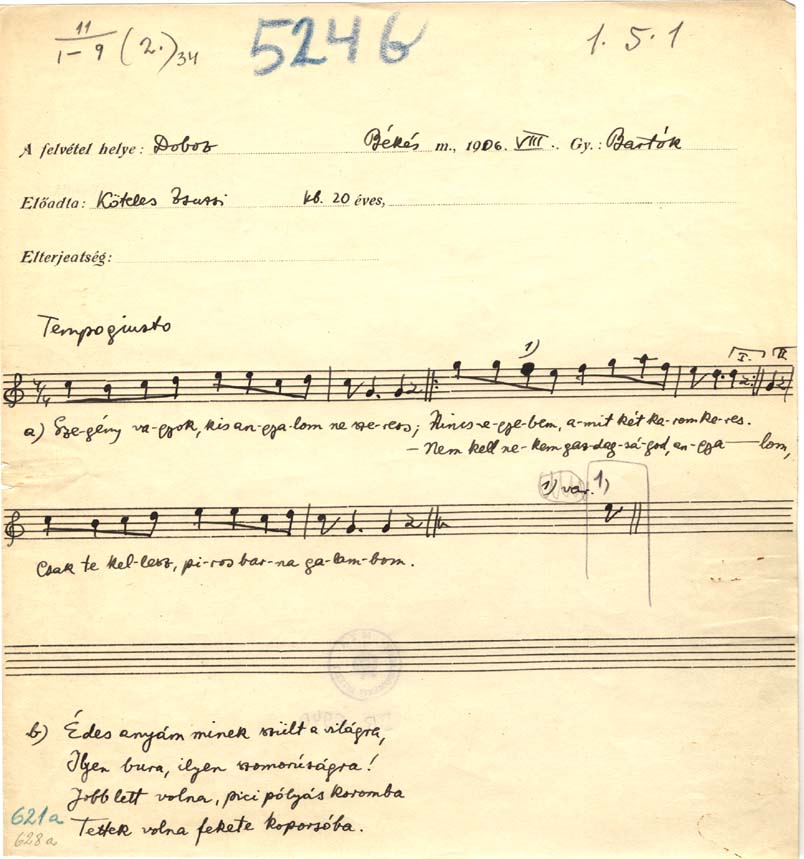 11
1–9 (2.) 34 5246 1.5.1
A felvétel helye: Doboz Békés m., 1906. VIII. Gy.: Bartók
Előadta: Köteles Zsuzsi kb. 20 éves,
Elterjedtség:
Tempo giusto
1) I. II.
4/4
a) Sze-gény va-gyok, kis an-gya-lom ne sze-ress; Nincs-e-gye-bem, a-mit két ka-rom ke-res.
– Nem kell ne-kem gaz-dag-sá-god, an-gya-lom,
1) var. 1)
Csak te kel-lesz, pi-ros bar-na ga-lam-bom.
b) Édes anyám minek szült a világra,
Ilyen bura, ilyen szomorúságra!
Jobb lett volna, pici pólyás koromba
621a Tettek volna fekete koporsóba.
628a